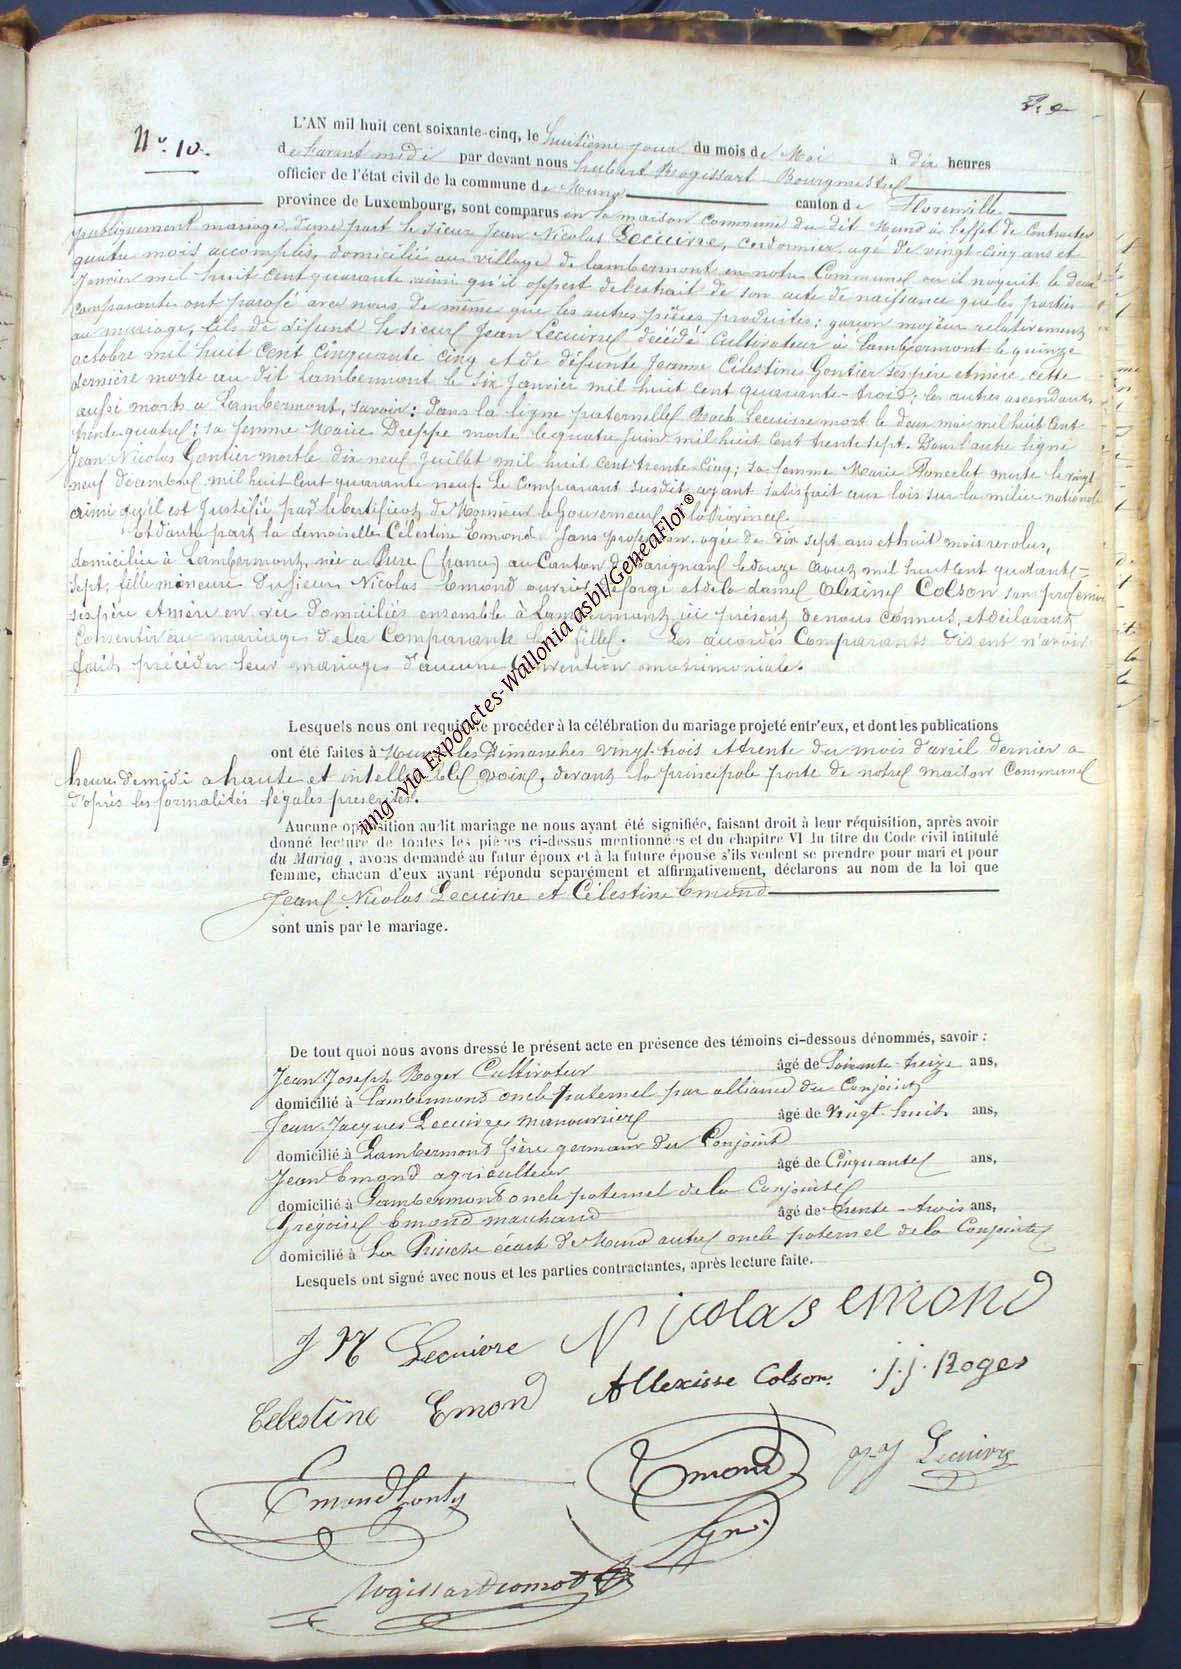 N° 10.
L'AN mil huit cent soixante-cinq, le huitième jour du mois de Mai à dix heures
de avant midi par devant nous hubert Rogissart Bourgmestre
officier de l'état civil de la commune de Muno canton de Florenville
province de Luxembourg, sont comparus en la maison commune du dit Muno à l'effet de Contracter
publiquement mariage, d'une part le sieur Jean Nicolas Lecuivre, Cordonnier, agé de vingt-cinq ans et
quatre mois accomplis, domicilié au village de Lambermont en notre Commune où il naquit le deux
Janvier mil huit Cent quarante ainsi qu'il appert de l'extrait de son acte de naissance que les parties
Comparantes ont parafé avec nous de même que les autres pièces produites; garçon majeur relativement
au mariage, fils de défunt le sieur Jean Lecuivre décédé Cultivateur à Lambermont le quinze
octobre mil huit Cent Cinquante Cinq et de défunte Jeanne Célestine Gontier ses père et mère, cette
dernière morte au dit Lambermont le Six Janvier mil huit cent quarante-trois; les autres ascendants
aussi morts a Lambermont, savoir: Dans la ligne paternelle Roch Lecuivre mort le deux mai mil huit Cent
trente-quatre; sa femme Marie Dreppe morte le quatre Juin mil huit Cent trente sept. Dans l'autre ligne
Jean Nicolas Gontier mort le dix neuf Juillet mil huit cent trente Cinq; sa femme Marie Poncelet morte le vingt
neuf Décembre mil huit Cent quarante neuf. Le Comparant susdit ayant satisfait aux lois sur la milice nationale
ainsi qu'il est Justifié par le Certificat de Monsieur le Gouverneur de la Province.
Et d'autre part la demoiselle Célestine Emond Sans profession, agée de dix sept ans et huit mois revolus,
domiciliée à Lambermont, née a Pure (france) au Canton de Carignan le douze aout mil huit cent quarante-
sept, fille mineure du sieur Nicolas Emond ouvrier de forge et de la dame Alexine Colson sans profession
ses père et mère en vie Domiciliés ensemble à Lambermont, ici présents de nous Connus, et déclarant
Consentir au mariage de la Comparante leur fille. Les accordés Comparants disent n'avoir
fait précéder leur mariage d'aucune Convention matrimoniale.
Lesquels nous ont requis de procéder à la célébration du mariage projeté entr'eux, et dont les publications
ont été faites à Muno les Dimanches vingt-trois et trente du mois d'avril dernier a
heure de midi a haute et intelligible voix, devant la principale porte de notre maison Commune
d'après les formalités légales prescrites.
Aucune opposition audit mariage ne nous ayant été signifiée, faisant droit à leur réquisition, après avoir
donné lecture de toutes les pièces ci-dessus mentionnées et du chapitre VI du titre du Code civil intitulé
du Mariag, avons demandé au futur époux et à la future épouse s'ils veulent se prendre pour mari et pour
femme, chacun d'eux ayant répondu séparément et affirmativement, déclarons au nom de la loi que
Jean Nicolas Lecuivre et Célestine Emond
sont unis par le mariage.
De tout quoi nous avons dressé le présent acte en présence des témoins ci-dessous dénommés, savoir :
Jean Joseph Roger Cultivateur âgé de Soixante-treize ans,
domicilié à Lambermont oncle paternel par alliance du Conjoint
Jean-Jacques Lecuivre manouvrier âgé de vingt-huit ans,
domicilié à Lambermont frère germain du Conjoint
Jean Emond agriculteur âgé de Cinquante ans,
domicilié à Lambermont oncle paternel de la Conjointe
Grégoire Emond marchand âgé de trente-trois ans,
domicilié à La écart de Muno autre oncle paternel de la Conjointe
Lesquels ont signé avec nous et les parties contractantes, après lecture faite.
J N Lecuivre Nicolas emond
Celestine Emond Allexisse Colson. j.j. Roger
Emond Emond J J Lecuivre
Rogissart
img via Expoactes-Wallonia asbl/GeneaFlor©